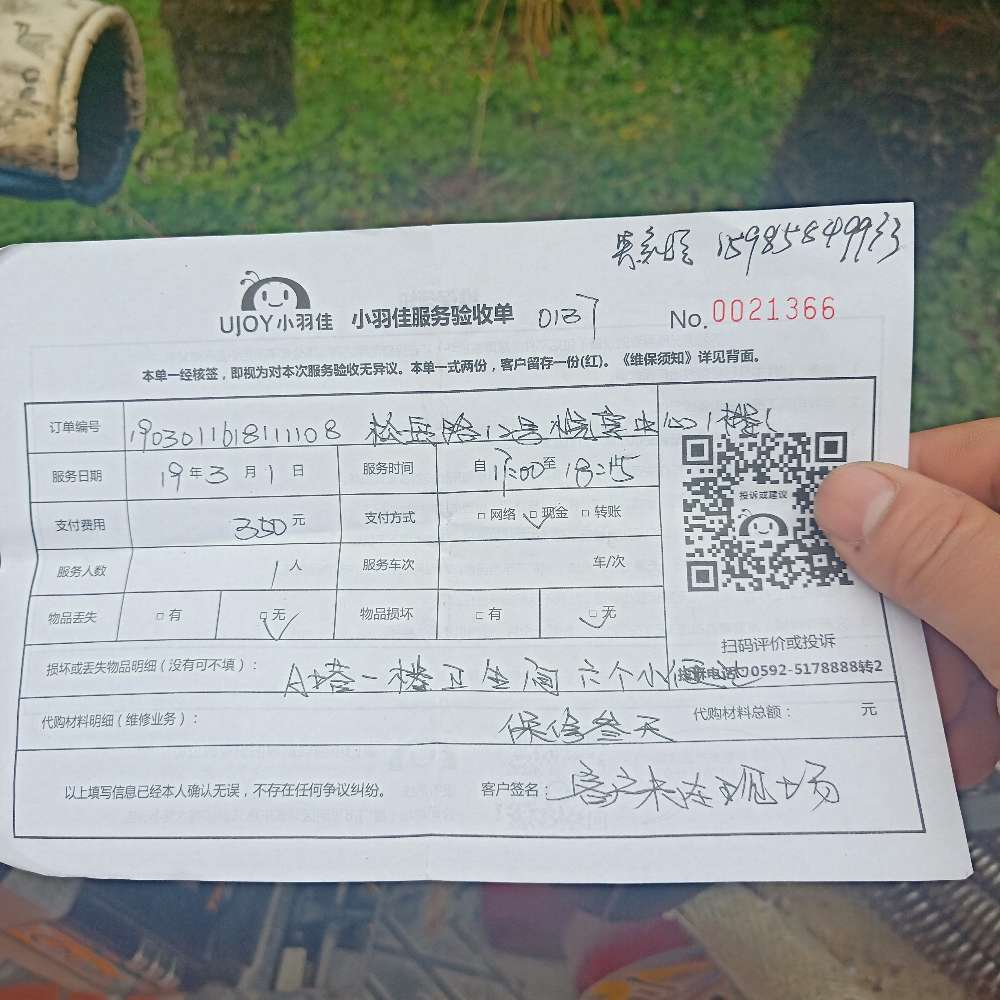 15985849933
UJOY小羽佳 小羽佳服务验收单 0137 No.0021366
本单一经核签，即视为对本次服务验收无异议。本单一式两份，客户留存一份(红)。《维保须知》详见背面。
订单编号 1903011618111108 12号 中心1楼
服务日期 19年3月1日 服务时间 自17:00至18:15
支付费用 350元 支付方式 □网络 □现金 □转账
投诉或建议
服务人数 1人 服务车次 车/次
物品丢失 □有 □无 物品损坏 □有 □无
扫码评价或投诉
损坏或丢失物品明细（没有可不填）： A塔一楼卫生间六个小便池
0592-5178888转2
代购材料明细（维修业务）： 保修叁天 代购材料总额： 元
以上填写信息已经本人确认无误，不存在任何争议纠纷。 客户签名： 客户未在现场